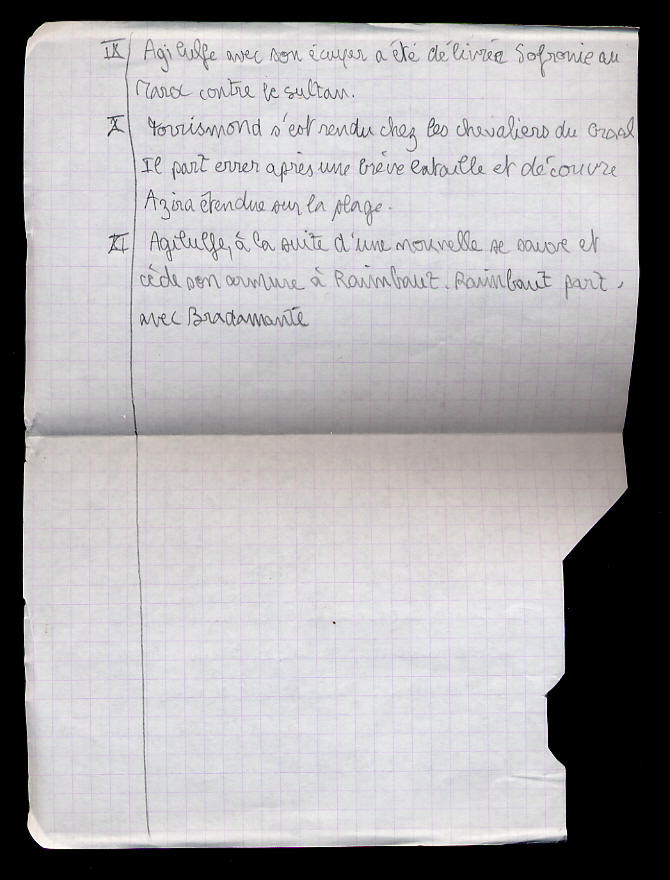 IX Agilulfe avec son écuyer a été délivrée Sofronie au
Maroc contre le sultan.
X Torrismond s'est rendu chez les chevaliers du Graal
Il part errer après une brève bataille et découvre
Azira étendue sur la plage.
XI Agilulfe, à la suite d'une nouvelle se sauve et
cède son armure à Raimbaut. Raimbaut part,
avec Bradamante